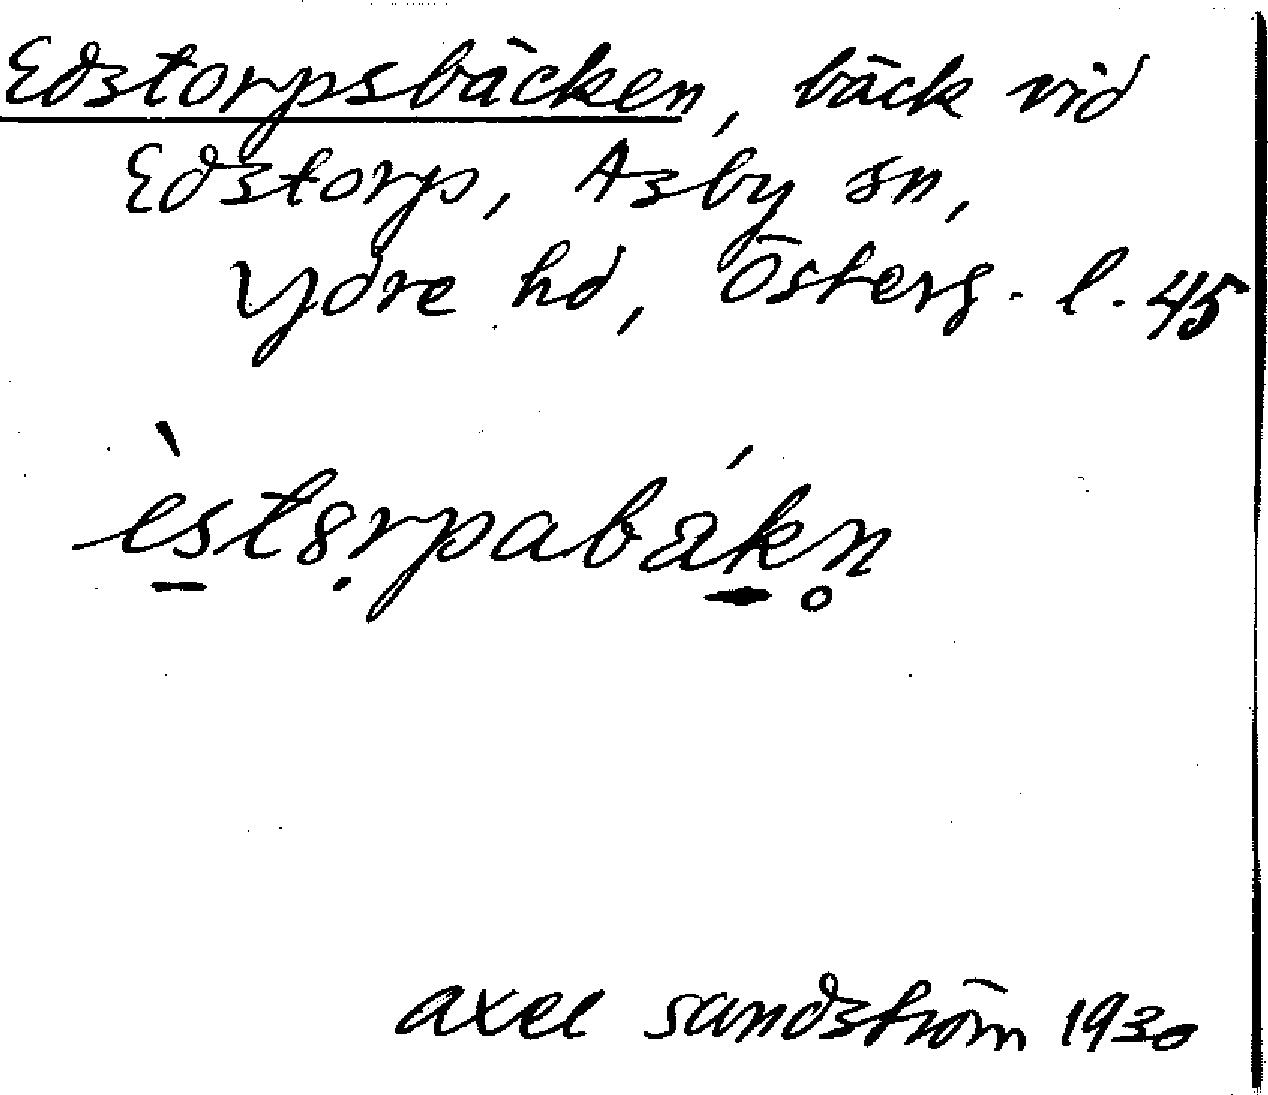 Edstorpsbäcken, bäck vid
Edstorp, Asby sn,
Ydre hd, Österg. l. 45
èstạrpabák̠n̥
Axel Sandström 1930